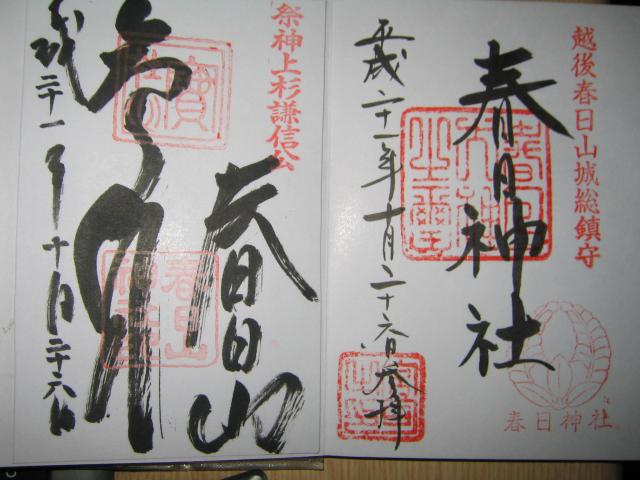 越後春日山城総鎮守
春日神社
平成二十一年十月二十六日参拝
春日神社
祭神上杉謙信公
春日山
平成二十一年十月二十六日
春日山